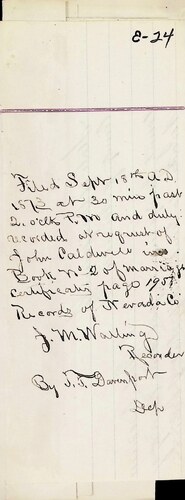 E-24
Filed Sept 18th A.D
1873 at 30 min past
2. o'clk P.M and duly
recorded at request of
John Caldwell in
Book No 2 of marriage
certificates page 190
Records of Nevada Co
J. M. Walling
Recorder
By T. T. Davenport
Dep